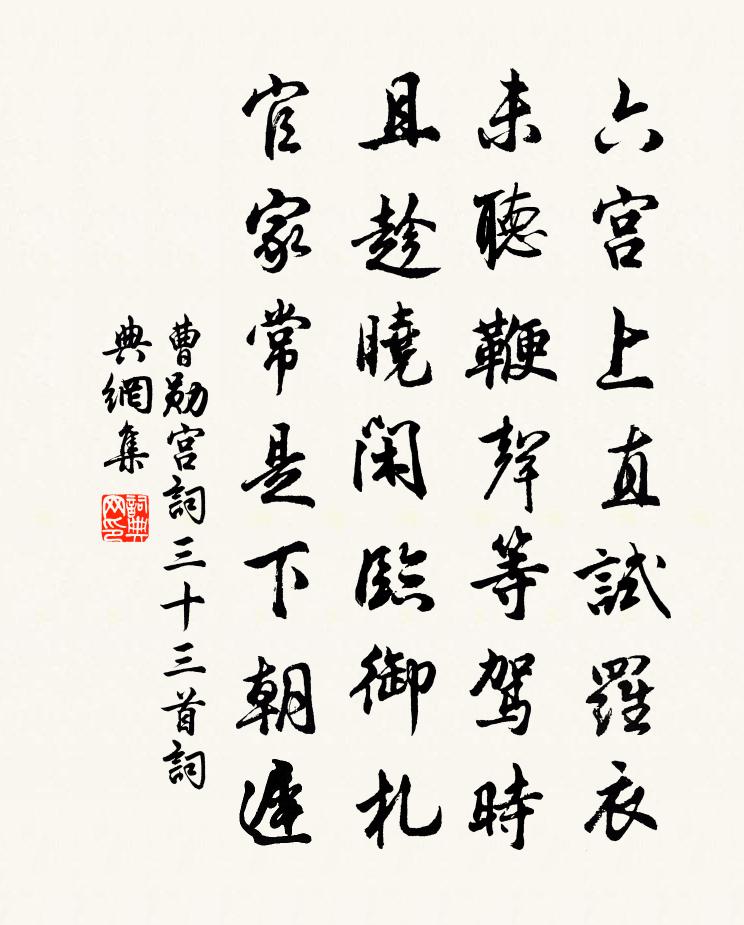 六宮上直試羅衣
未聽鞭聲等駕時
且趁曉閑臨御札
官家常是下朝遲
曹勛宮詞三十三首詞
典網集
詞典
网印